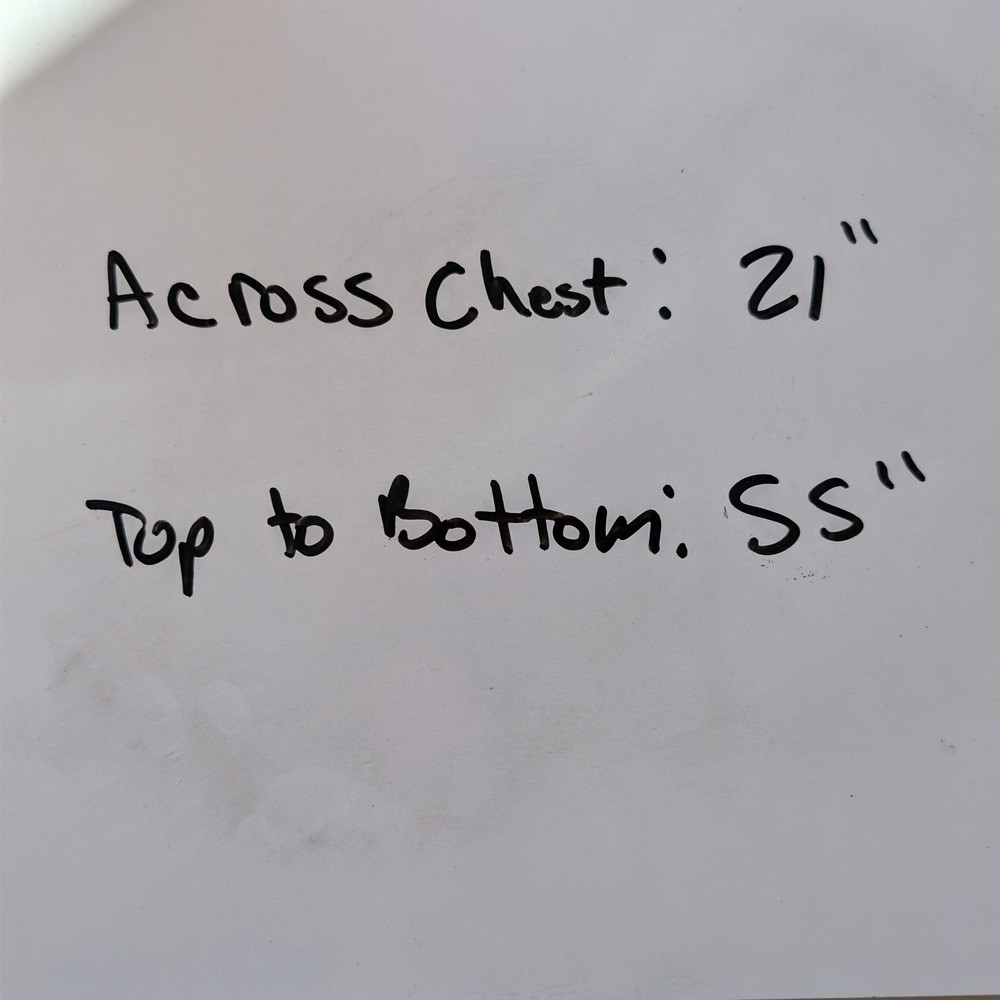 Across Chest: 21"
Top to Bottom: 55"